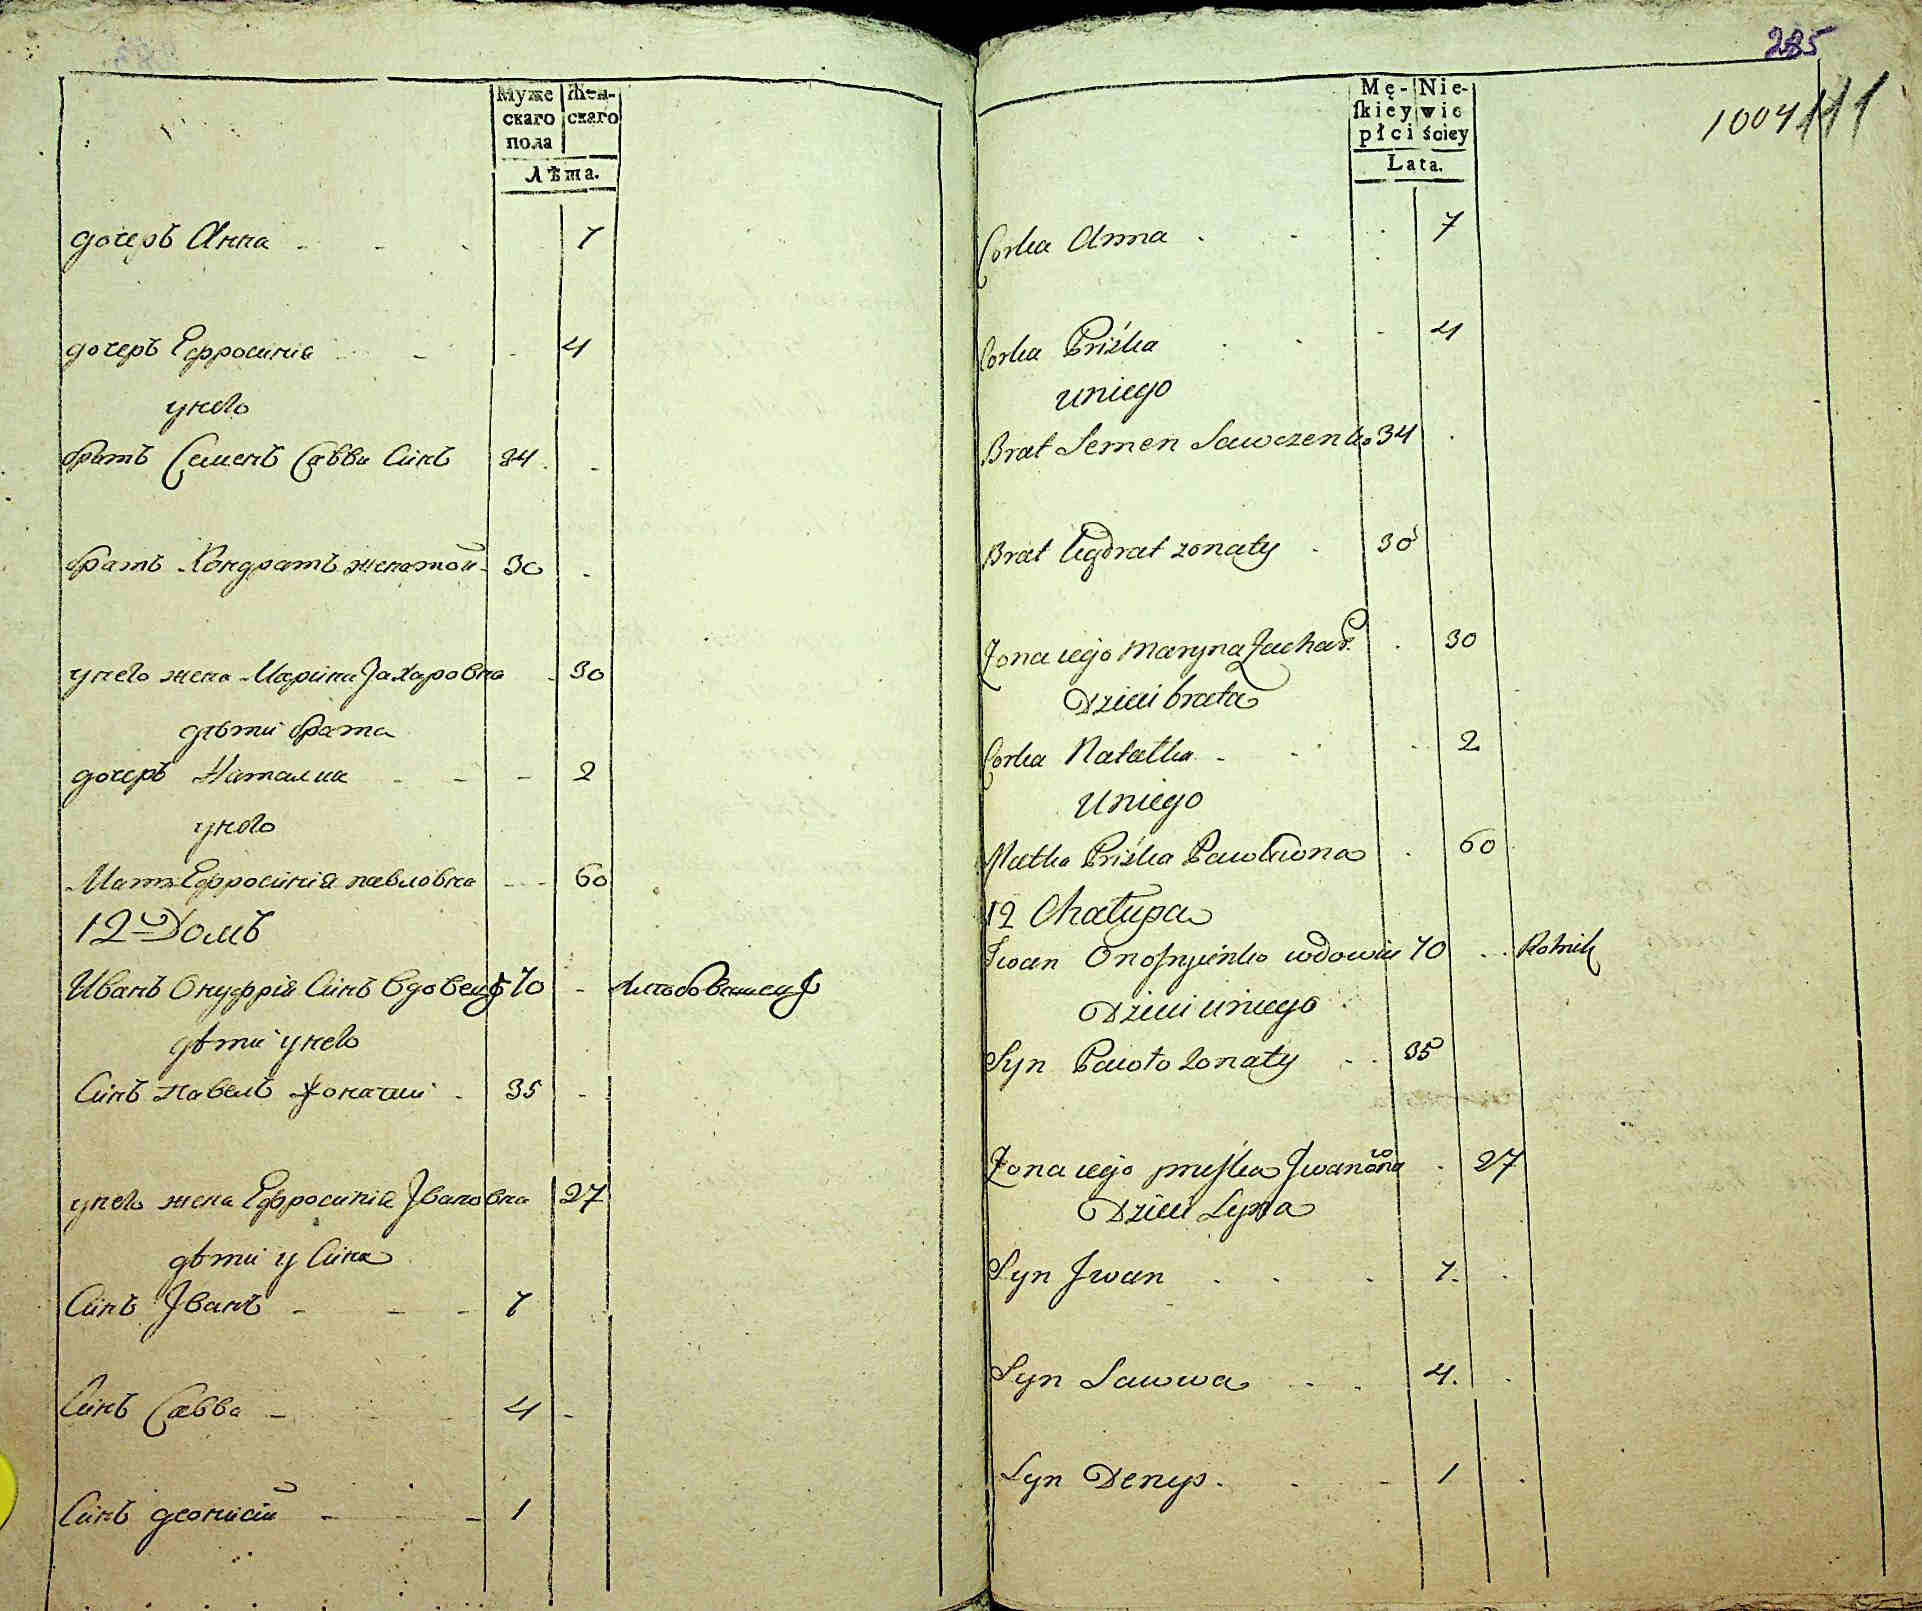 Муже
скаго
пола
Жен-
скаго
Лѣта.
дочеръ Анна 7
дочеръ Ефросинія 4
унего
братъ Семенъ Савви Синъ 34
братъ Кондратъ женатой 30
унего жена Марина Захаровна 30
дѣти брата
дочеръ Наталия 2
унего
Мать Ефросинія павловна 60
12 Домъ
Иванъ Онуфрій Синъ вдовецъ 70 хлѣбопашецъ
дѣти унего
Синъ павелъ жонатий 35
унего жена Ефросинія Івановна 27
дѣти у Сина
Синъ Іванъ 7
Синъ Савва 4
Синъ деонисій 1
285
1004 111
Mę-
skiey
płci
Nie-
wie
ściey
Lata.
Corka Anna 7
Corka Priśka 4
uniego
Brat Semen Sawczenko 34
Brat Kądrat zonaty 30
Zona iego Maryna Zachar. 30
Dzieci brata
Corka Natalka 2
Uniego
Matka Priśka Pawłowna 60
12 Chałupa
Iwan Onofryienko wdowiec 70 Rolnik
Dzieci uniego
Syn Pawło zonaty 35
Zona iego pryśka Jwanowna 27
Dzieci Syna
Syn Jwan 7.
Syn Sawwa 4.
Syn Denys 1